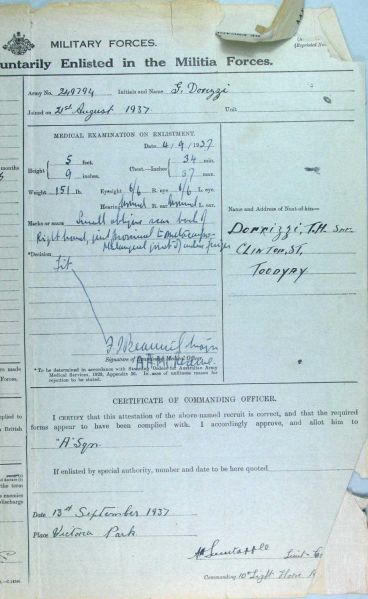 MILITARY FORCES.
untarily Enlisted in the Militia Forces.
Army No. 249794 Initials and Name G. Dorizzi
Joined on 21st August 1937 Unit
MEDICAL EXAMINATION ON ENLISTMENT.
Date 4/9/1937
Height 5 feet. 9 inches. Chest—Inches 34 min. 37 max.
Weight 151 lb. Eyesight 6/6 R. eye 6/6 L. eye.
Hearing R. ear L. ear
Marks or scars Small oblique scar back of
Right hand, just proximal to
*Decision Fit
Signature of Examining Medical Officer
A.A.M.C. Reserve
* To be determined in accordance with Standing Orders for Australian Army
Medical Services, 1929, Appendix 30. In case of unfitness reason for
rejection to be stated.
Name and Address of Next-of-kin—
Dorrizzi, T.H. Snr.
CLINTON, ST,
TOODYAY
CERTIFICATE OF COMMANDING OFFICER.
I CERTIFY that this attestation of the above-named recruit is correct, and that the required
forms appear to have been complied with. I accordingly approve, and allot him to
"A" Sqn
If enlisted by special authority, number and date to be here quoted
Date 13th September 1937
Place Victoria Park
Lieut-
Commanding 10th Light Horse